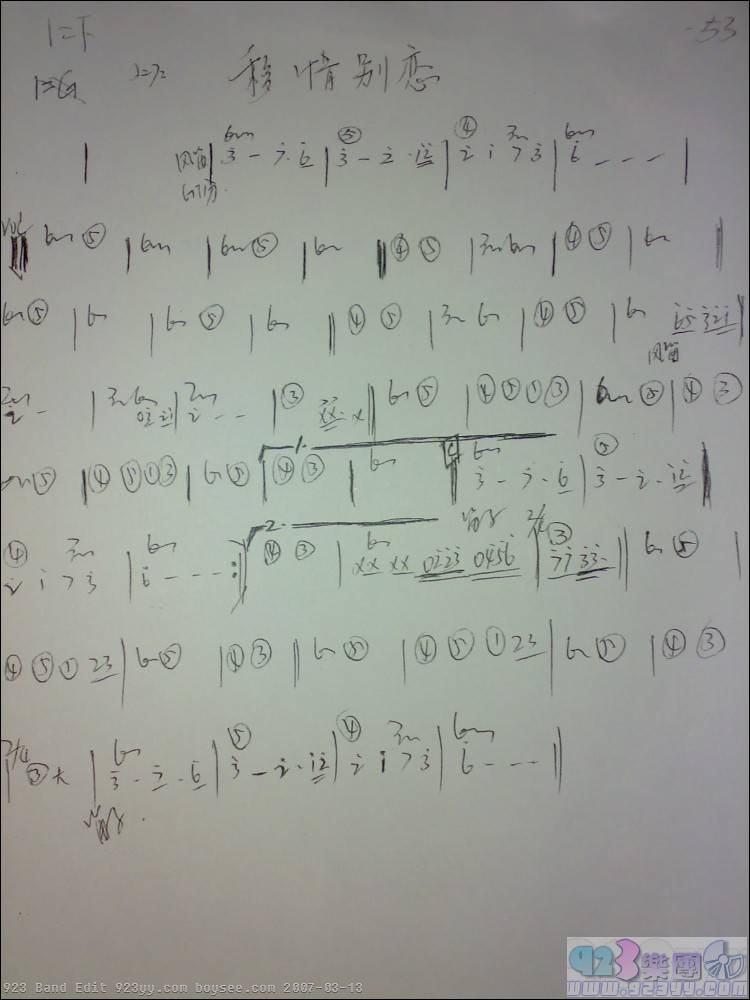 1=F -53
1=G 移情别恋
风笛 6m 3 - 7· 6 | ⑤ 3 - 2 · 12 | ④ 2 1 3m 7 3 | 6m 6 - - - |
Vol
6m ⑤ | 6m | 6m ⑤ | 6m || ④ ⑤ | 3m 6m | ④ ⑤ | 6m ||
6m ⑤ | 6m | 6m ⑤ | 6m || ④ ⑤ | 3m 6m | ④ ⑤ | 6m 65 321 |
风笛
2m 2 - | 3m 6m 0221 | 2m 2 - - | ③ xx· x || 6m ⑤ | ④ ⑤ ① ③ | 6m ⑤ | ④ ③
6m ⑤ | ④ ⑤ ① ③ | 6m ⑤ | 1. ④ ③ | 6m || 6m 3 - 7 · 6 | ⑤ 3 - 2 · 12 |
④ 2 1 3m 7 3 | 6m 6 - - - :|| 2. ④ ③ | 6m xx xx 0123 0456 | 2/4 ③ 77 33· || 6m ⑤ |
④ ⑤ ① 23 | 6m ⑤ | ④ ③ || 6m ⑤ | ④ ⑤ ① 23 | 6m ⑤ | ④ ③
2/4 ③ x | 6m 3 - 7 · 6 | ⑤ 3 - 2 · 12 | ④ 2 1 3m 7 3 | 6m 6 - - - ||
923樂團
www.923yy.com
923 Band Edit 923yy.com boysee.com 2007-03-13